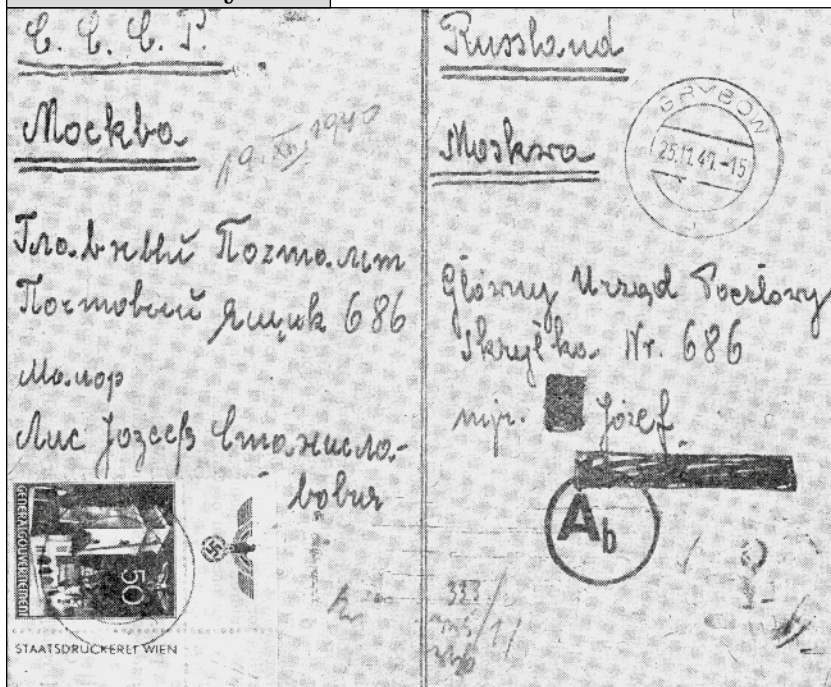 С. С. С. Р.
Москва
19. XII. 1940
Главный Почтамт
Почтовый ящик 686
Маиор
Лис Јозееф Станисла-
GENERALGOUVERNEMENT
50
STAATSDRUCKEREI WIEN
Russland
GRYBÓW
25.11.40.-15
Moskwa
Główny Urząd Pocztowy
Skrzytka Nr. 686
mjr. Józef
Ab